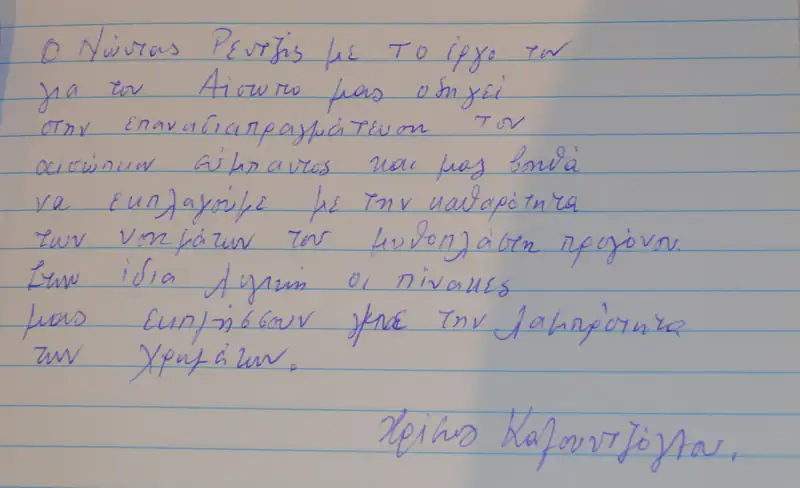 Ο Νώντας Ρεντζής με το έργο του
για τον Αίσωπο μας οδηγεί
στην επαναδιαπραγμάτευση του
αισώπειου σύμπαντος και μας βοηθά
να εκπλαγούμε με την καθαρότητα
των νοημάτων του μυθοπλάστη προγόνου.
Στην ίδια λογική οι πίνακες
μας εκπλήσσουν με την λαμπρότητα
των χρωμάτων.
Χρίστος Καζαντζόγλου.